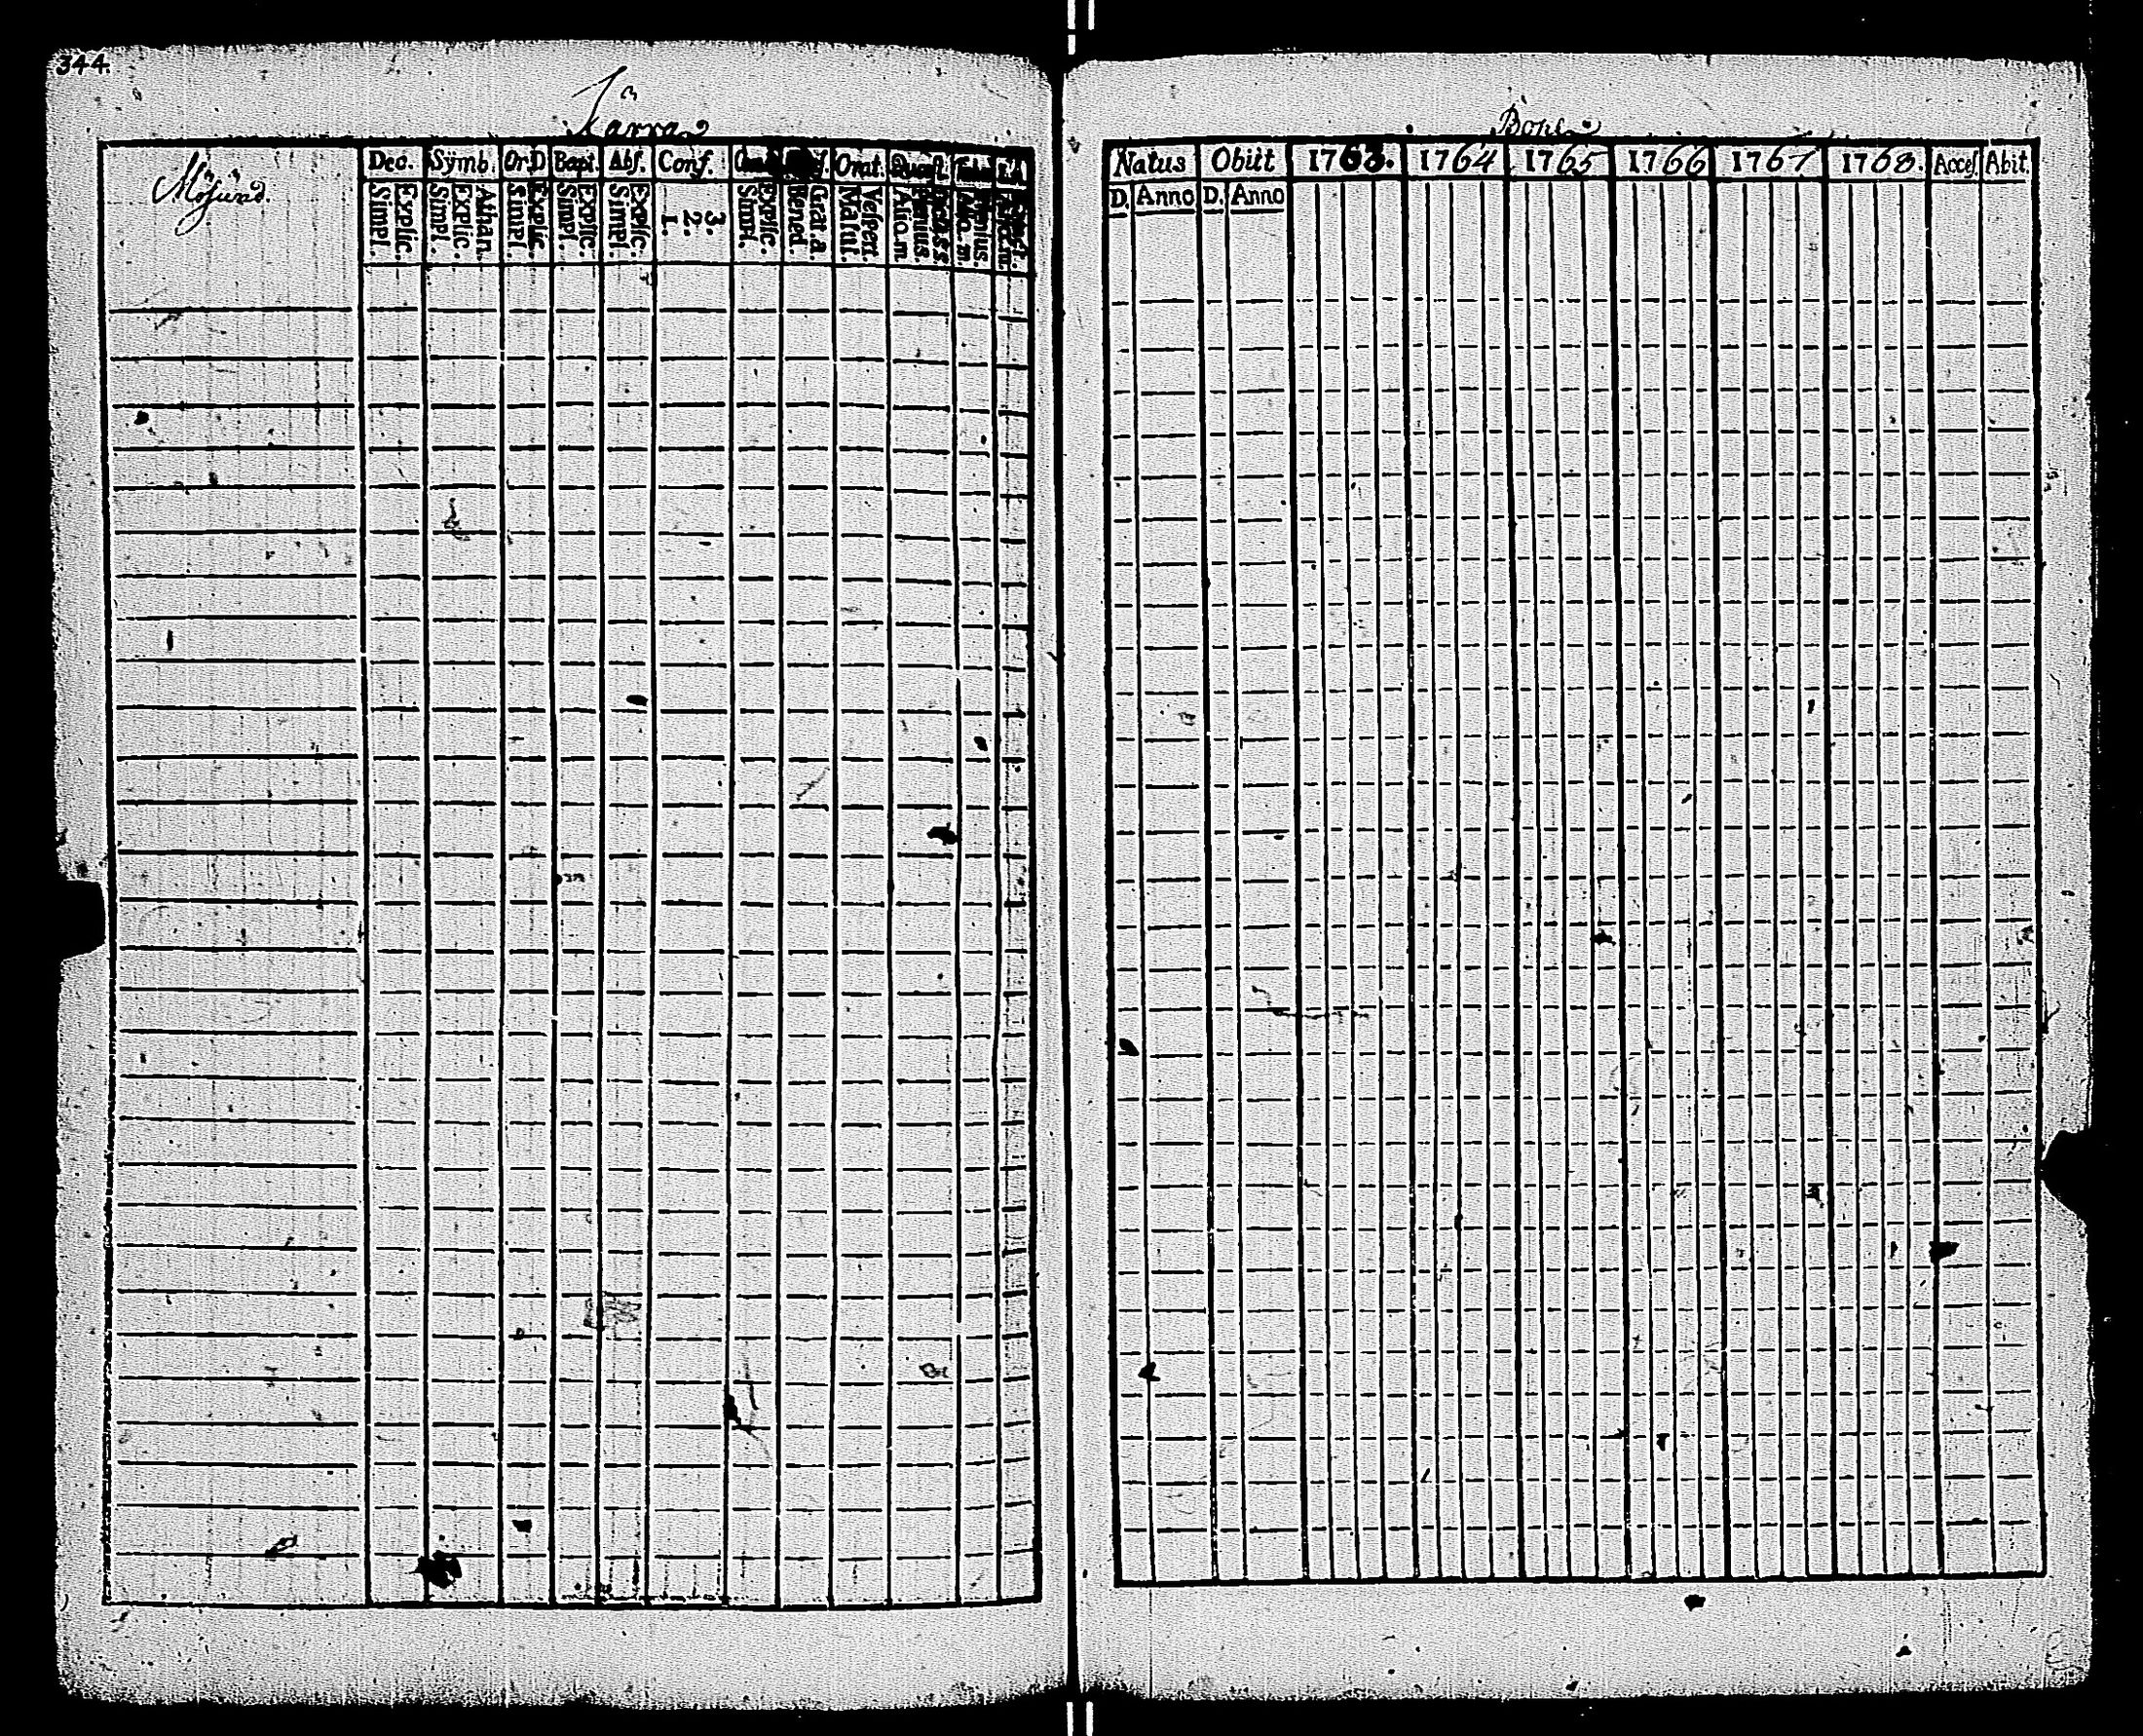 344.
Kärra
Bohl
Mösund.
Dec. Symb. Or.D Bapt. Abs. Conf. Orat.
Simpl. Explic. Simpl. Explic. Athan. Simpl. Explic. Simpl. Explic. Simpl. Explic. 1. 2. 3. Simpl. Explic. Bened. Grat. a. Matut. Vespert. Alio. m.
Natus Obiit 1763. 1764 1765 1766 1767 1768. Acces. Abit.
D. Anno D. Anno